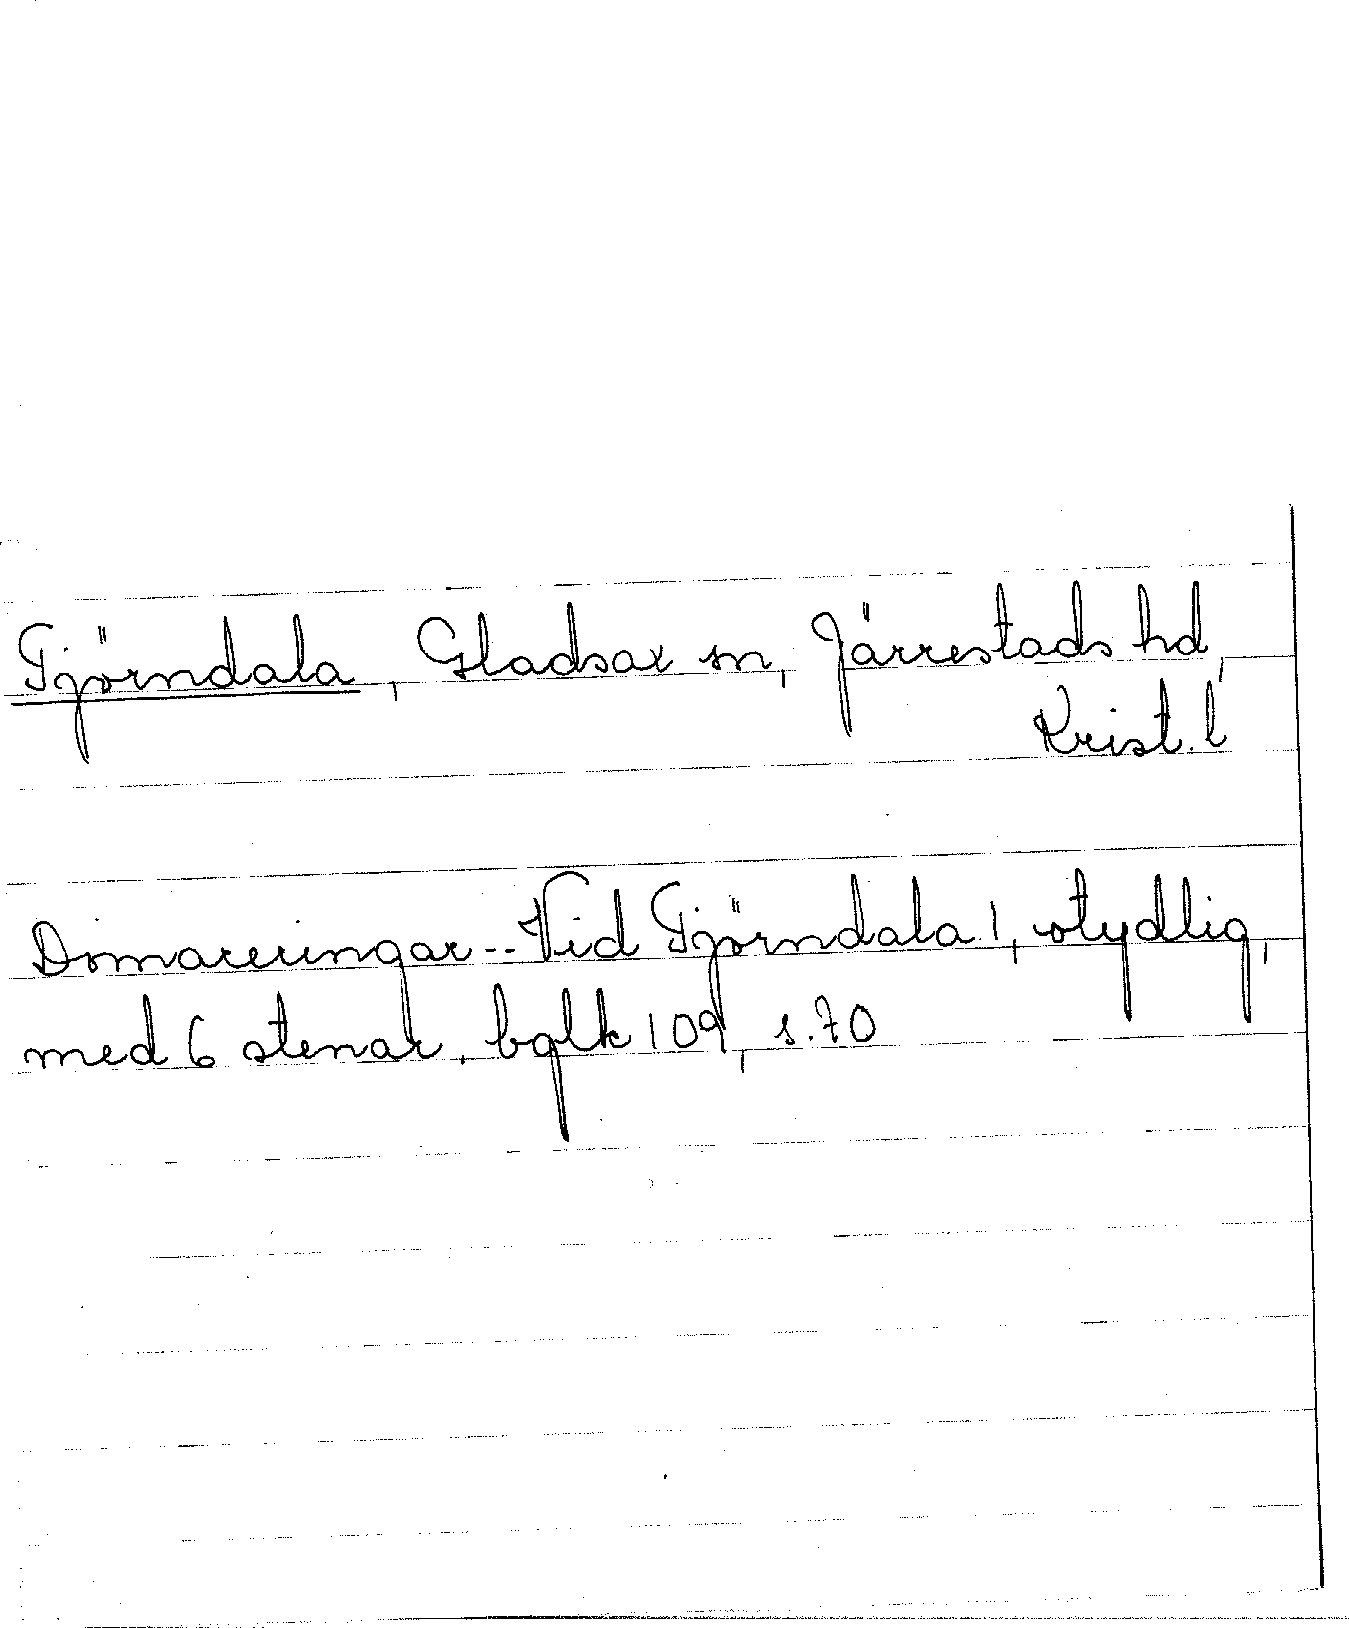 Tjörndala, Gladsax sn, Järrestads hd,
Krist. l
Domareringar -- Vid Tjörndala 1, otydlig,
med 6 stenar. bglk 109, s. 70